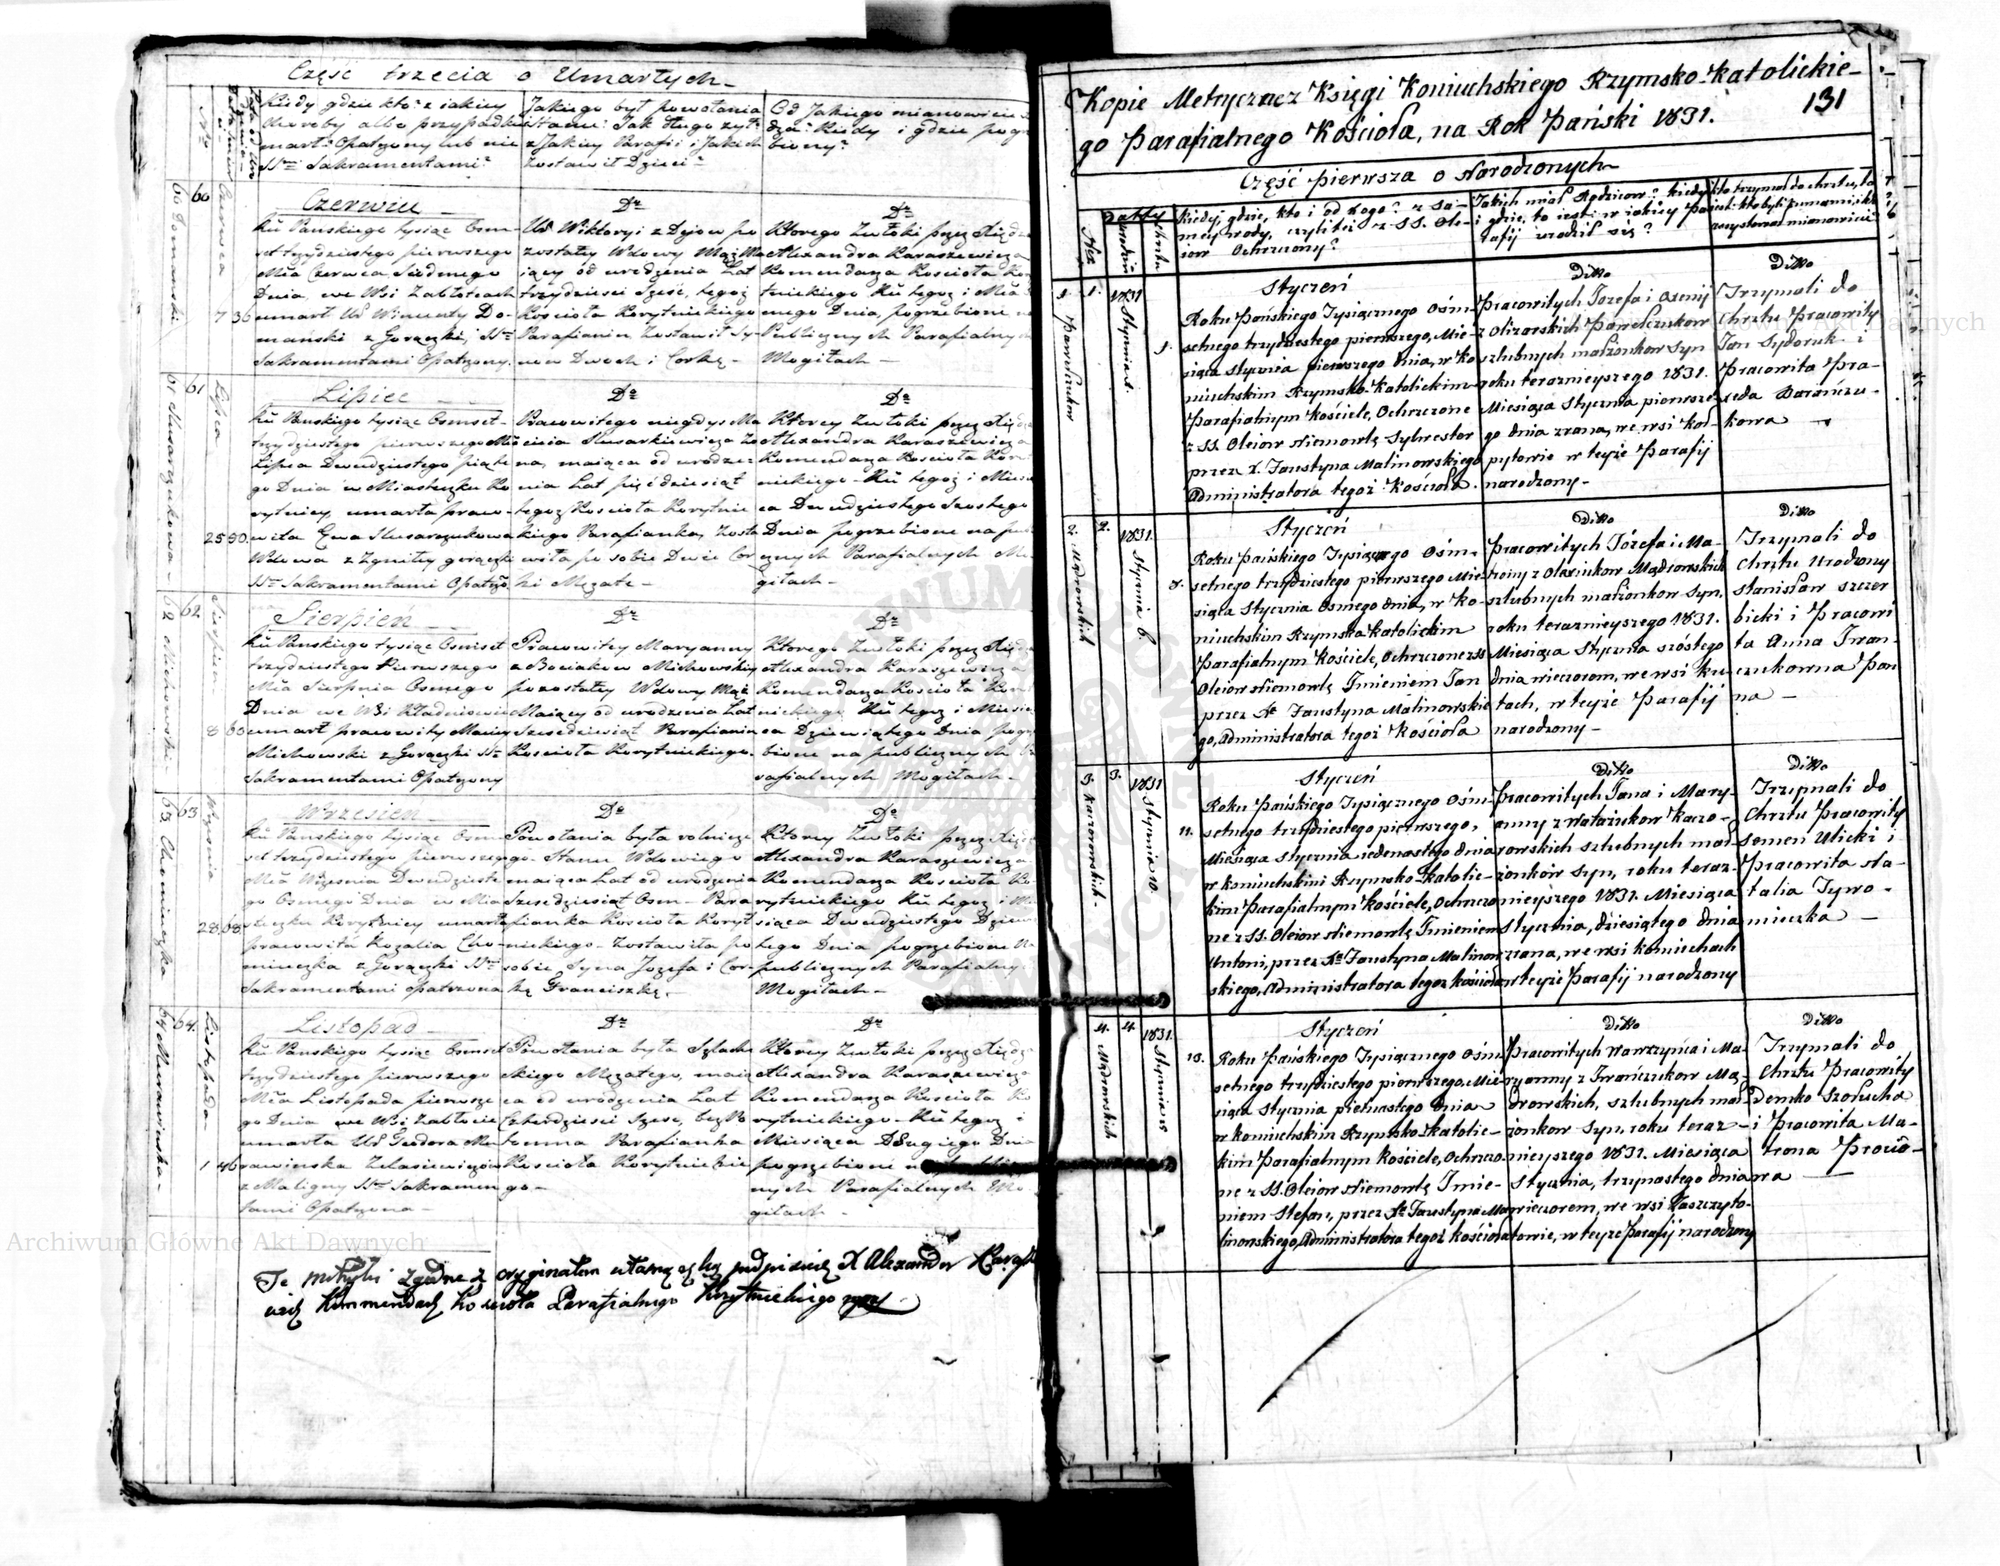 Część trzecia o Umarłych
Kiedy gdzie kto z iakiey
choroby albo przypadku
umarł Opatrzony lub nie
SS. Sakramentami?
Jakiego był powołania
i Stanu? Jak długo żył?
z Jakiey Parafii i Jakich
zostawił Dzieci?
Od Jakiego mianowicie
Kiedy i gdzie
60 60 Domanski
Czerwca 7 36
Czerwiec
Ru Panskiego tysiąc Osm-
set trzydziestego pierwszego
Mca Czerwca Siedmego
Dnia, we Wsi Zabłotcach
umarł Ur Wincenty Do-
mański z Gorączki, SS
Sakramentami Opatrzony.
Dº
Ur Wiktoryi z Dejow po
zostałey Wdowy Mąż Ma
iący od urodzenia Lat
trzydzieści Sześć, tegoż
Kościoła Korytnickiego
Parafianin Zostawił Sy-
now Dwoch i Corkę -
Dº
Ktorego Zwłoki przez Xiędza
Alexandra Karaszewicza
Komendarza Kościoła Kor
tnickiego Ru tegoż i Mca
mego Dnia, pogrzebione na
Publicznych Parafialnych
Mogiłach -
61 61 Slusarczukowa
Lipca 25 50
Lipiec
Ru Panskiego tysiąc Osmset
trzydziestego pierwszego Mca
Lipca Dwudziestego piąte
go Dnia w Miasteczku Ko
rytnicy, umarła praco-
wita Ewa Slusarczukowa
Wdowa z Zgniłey gorączki
SS Sakramentami Opatrzo
Dº
Pracowitego niegdys Ma
cieia Slusarkiewicza Żo
na, maiąca od urodze-
nia Lat pięćdziesiąt
tegoż Kościoła Korytnic
kiego Parafianka, Zosta
wiła po sobie Dwie Cor
ki Mężate -
Dº
Ktorey Zwłoki przez Xiędza
Alexandra Karaszewicza
Komendarza Kościoła Kor
nickiego - Ru tegoż i Miesią
ca Dwudziestego Szostego
Dnia pogrzebione na pu
cznych Parafialnych Mo
giłach -
62 62 Michowski
Sierpnia 8 60
Sierpień
Ru Panskiego tysiąc Osmset
trzydziestego Pierwszego
Mca Sierpnia Osmego
Dnia we Wsi Kładniowie
umarł pracowity Maciey
Michowski z Gorączki SS
Sakramentami Opatrzony
Dº
Pracowitey Maryanny
z Bociakow Michowskiey
pozostałey Wdowy Mąż
Maiący od urodzenia Lat
Szesedziesiąt Parafianin
Kościoła Korytnickiego.
Dº
Ktorego Zwłoki przez Xiędza
Alexandra Karaszewicza
Komendarza Kościoła Kory
nickiego Ru tegoż i Miesią
ca Dziewiątego Dnia pogrz
bione na publicznych Pa
rafialnych Mogiłach -
63 63 Chominiczka
Wrzesnia 28 68
Wrzesień
Ru Panskiego tysiąc Osm-
set trzydziestego pierwszego
Mca Wrzesnia Dwudzieste
go Osmego Dnia w Mia
steczku Korytnicy umarła
pracowita Rozalia Cho-
miniczka z Gorączki SS
Sakramentami opatrzona
Dº
Powołania była rolnicze
go. Stanu Wdowiego
maiąca Lat od urodzenia
Szesedziesiąt Osm - Para
fianka Kościoła Koryt
nickiego - Zostawiła po
sobie Syna Jozefa i Cor
kę Franciszkę -
Dº
Ktorey Zwłoki przez Xiędza
Alexandra Karaszewicza
Komendarza Kościoła Ko
rytnickiego Ru tegoż i Mie
siąca Dwudziestego Dziew
tego Dnia pogrzebione na
publicznych Parafialny
Mogiłach -
64 64 Murawinska
Listopada 1 46
Listopad
Ru Panskiego tysiąc Osmset
trzydziestego pierwszego
Mca Listopada pierwsze
go Dnia we Wsi Zabłocie
umarła Ur Teodora Mu
rawinska
z Maligny SS Sakramen
tami Opatrzona -
Dº
Powołania była Szlache
ckiego Mężatego, maią
ca od urodzenia Lat
Czterdzieści Szesc,
Parafianka
Kościoła Korytnickie
go -
Dº
Ktorey Zwłoki przez Xiędz
Alexandra Karaszewicz
Komendarza Kościoła Ko
rytnickiego - Ru tegoż i
Miesiąca Drugiego Dnia
pogrzebione
nych Parafialnych Mo
giłach -
Te metryki zgodne z oryginałem własną ręką podpisuię X Alexander Karasze
wicz Kommendarz Kościoła Parafialnego Korytnickiego
Kopie Metryczne z Księgi Koniuchskiego Rzymsko-Katolickie-
go Parafialnego Kościoła, na Rok Pański 1831. 131
Część pierwsza o Narodzonych
Kiedy, gdzie, kto i od kogo? z sa-
mey wody, czyliteż z SS. Ole-
iow Ochrzczony?
Jakich miał Rodzicow? kiedy
i gdzie, to iest: w iakiey Pa-
rafij urodził się?
kto trzymał do chrztu,
1. 1. Pawelczukow
1831 Stycznia 1. 1.
Styczeń
Roku Pańskiego Tysiącznego Ośm-
setnego trzydziestego pierwszego, Mie-
siąca Stycznia pierwszego dnia, w Ko-
niuchskim Rzymsko-Katolickim
Parafialnym Kościele, Ochrzczone
z SS. Oleiow Niemowlę Sylwester
przez X. Faustyna Malinowskiego
Administratora tegoż Kościoła.
Ditto
Pracowitych Jozefa i Oseniy
z Olizarskich Pawelczukow
szlubnych małżonkow Syn
roku teraznieyszego 1831.
Miesiąca Stycznia pierwsze-
go dnia zrana, we wsi Koł-
pytowie w teyże Parafij
narodzony -
Ditto
Trzymali do
Chrztu Pracowity
Jan Sydoruk i
Pracowita Pra-
xeda Barańczu-
kowa -
2. 2. Mądrowskich
1831. Stycznia 6. 8.
Styczeń
Roku Pańskiego Tysiącznego Ośm-
setnego trzydziestego pierwszego Mie-
siąca Stycznia Osmego dnia, w Ko-
niuchskim Rzymsko-Katolickim
Parafialnym Kościele, Ochrzczone z SS
Oleiow Niemowlę Imieniem Jan
przez Xa Faustyna Malinowskie
go, Administratora tegoż Kościoła
Ditto
Pracowitych Józefa i Ma-
tronyny z Olexiukow Mądrowskich
szlubnych małżonkow Syn,
roku teraznieyszego 1831.
Miesiąca Stycznia szóstego
dnia wieczorem, we wsi Ku-
tach, w teyże Parafij
narodzony -
Ditto
Trzymali do
Chrztu Urodzony
Stanisław Szczer
bicki i Pracowi
ta Anna Iwan-
czukowna Pan
na -
3. 3. Kaczorowskich
1831 Stycznia 10. 11.
Styczeń
Roku Pańskiego Tysiącznego Ośm-
setnego trzydziestego pierwszego,
Miesiąca Stycznia iedenastego dnia
w Koniuchskim Rzymsko-Katolic-
kim Parafialnym Kościele, Ochrzczo
ne z SS. Oleiow Niemowlę Imieniem
Antoni, przez Xa Faustyna Malinow
skiego, Administratora tegoż Kościoła
Ditto
Pracowitych Jana i Mary-
anny z Watażukow Kaczo-
rowskich szlubnych mał-
żonków Syn, roku teraz-
nieyszego 1831. Miesiąca
Stycznia, dziesiątego dnia
zrana, we wsi Koniuchach
w teyże Parafij narodzony
Ditto
Trzymali do
Chrztu Pracowity
Semen Ulicki i
Pracowita Na-
talia Tywo-
niuczka -
4. 4. Mądrowskich
1831. Stycznia 13 15.
Styczeń
Roku Pańskiego Tysiącznego Ośm
setnego trzydziestego pierwszego, Mie-
siąca Stycznia piętnastego dnia
w Koniuchskim Rzymsko-Katolic-
kim Parafialnym Kościele, Ochrzczo
ne z SS. Oleiow Niemowlę Imie-
niem Stefan, przez Xa Faustyna Ma
linowskiego, Administratora tegoż Kościoła
Ditto
Pracowitych Wawrzyńca i Ma-
ryanny z Iwańczukow Mą-
drowskich, szlubnych mał-
żonkow Syn, roku teraz-
nieyszego 1831. Miesiąca
Stycznia, trzynastego dnia
wieczorem, we wsi Kaszczyto-
towie, w teyże Parafij narodzony
Ditto
Trzymali do
Chrztu Pracowity
Demko Szołucha
i Pracowita Ma-
trona Prociô-
wa -
Archiwum Główne Akt Dawnych